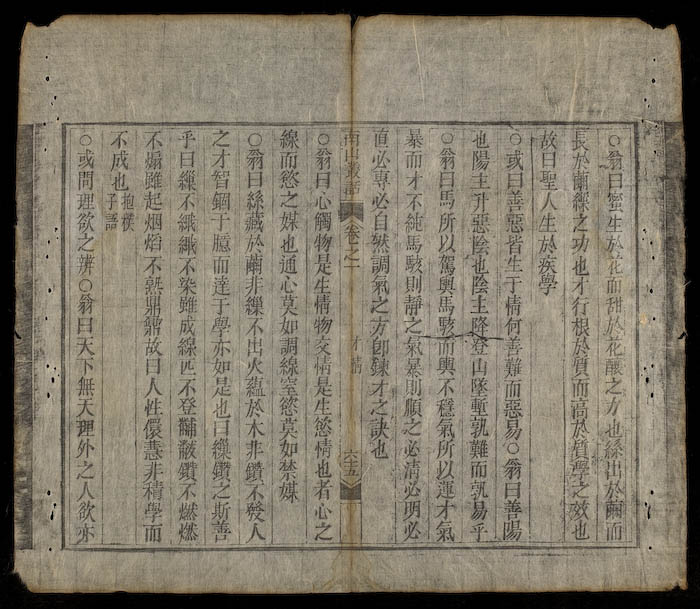 ○翁曰蜜生於花而甜於花釀之方也絲出於繭而
長於繭繅之功也才行根於質而高於質學之效也
故曰聖人生於疾學
○或曰善惡皆生于情何善難而惡易○翁曰善陽
也陽主升惡陰也陰主降登山墜塹孰難而孰易乎
○翁曰馬所以駕輿馬駭而輿不穩氣所以運才氣
暴而才不純馬駭則靜之氣暴則順之必清必明必
直必專必自然調氣之方卽鍊才之訣也
南山叢話 卷之一 才情 六十五
○翁曰心觸物是生情物交情是生慾情也者心之
線而慾之媒也通心莫如調線窒慾莫如禁媒
○翁曰絲藏於繭非繅不出火蘊於木非鑽不發人
之才智錮于臆而達于學亦如是也曰繅鑽之斯善
乎曰繅不織織不染雖成線匹不登黼黻鑽不燃燃
不煽雖起烟熖不熟鼎鼐故曰人性儇慧非積學而
不成也抱樸
子語
○或問理欲之辨○翁曰天下無天理外之人欲亦